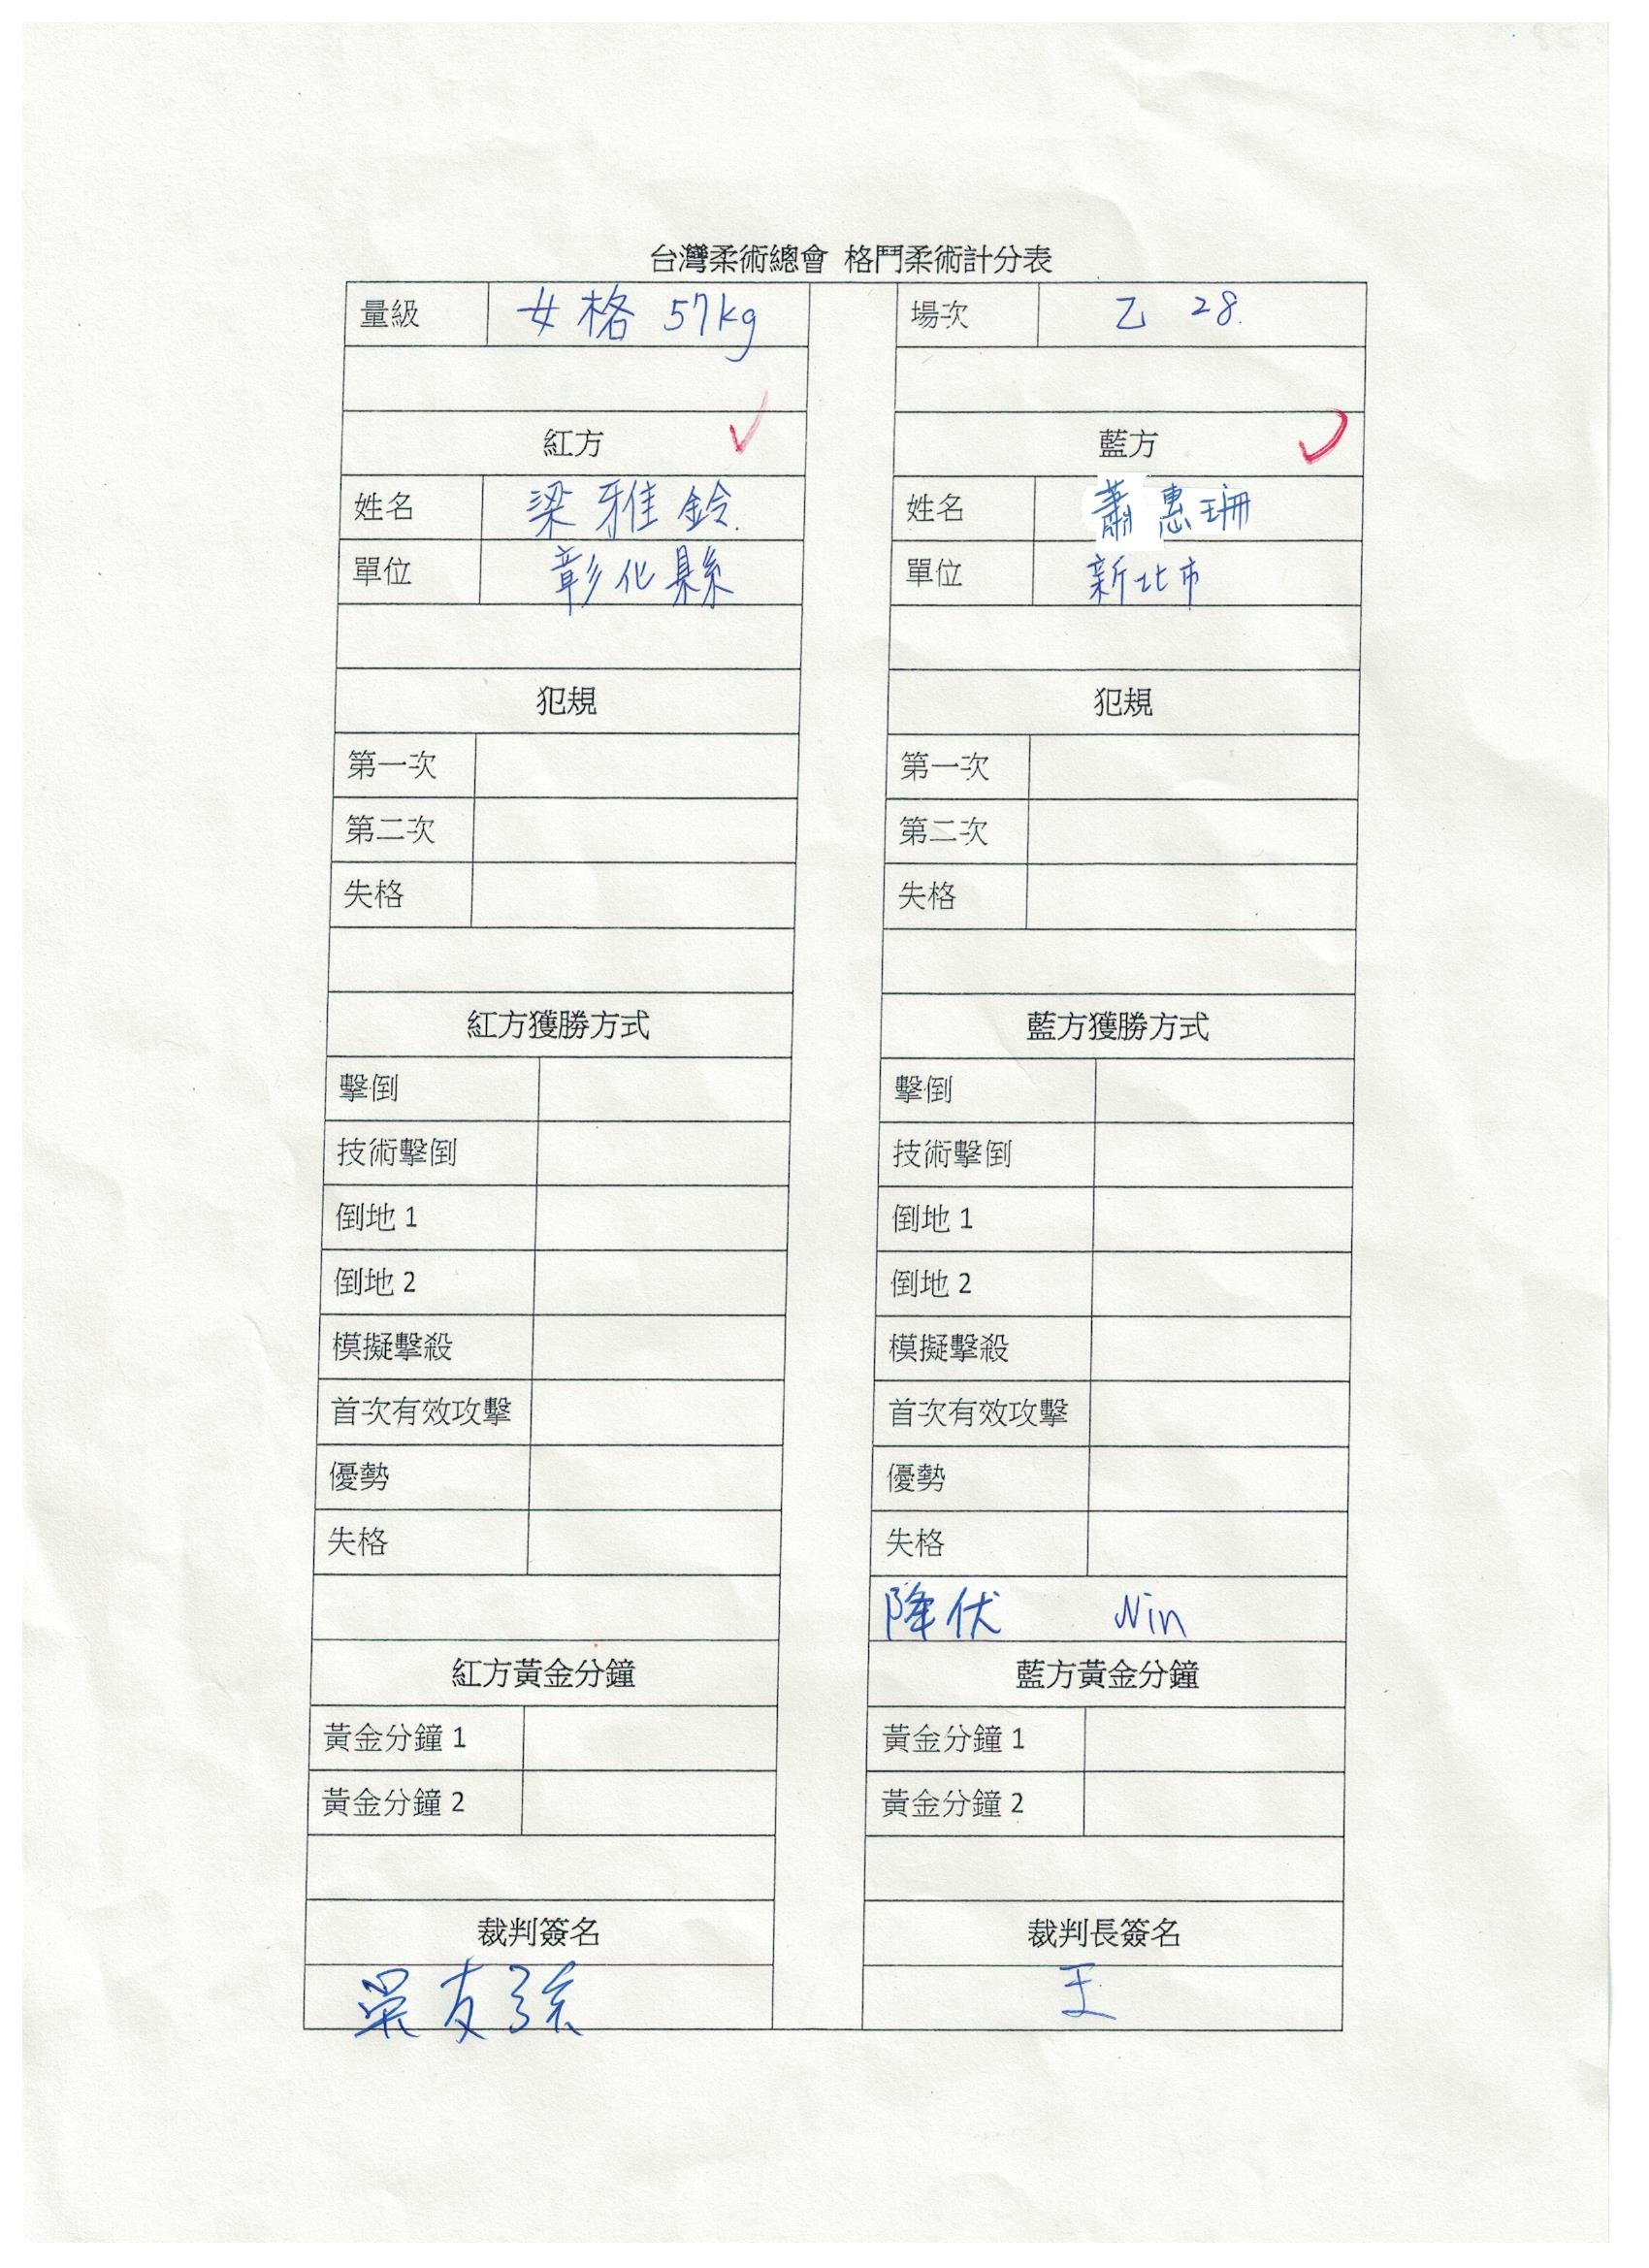 台灣柔術總會 格鬥柔術計分表
量級 女格 57kg 場次 乙 28.
紅方 藍方
姓名 梁雅鈴. 姓名 蕭惠珊
單位 彰化縣 單位 新北市
犯規 犯規
第一次 第一次
第二次 第二次
失格 失格
紅方獲勝方式 藍方獲勝方式
擊倒 擊倒
技術擊倒 技術擊倒
倒地 1 倒地 1
倒地 2 倒地 2
模擬擊殺 模擬擊殺
首次有效攻擊 首次有效攻擊
優勢 優勢
失格 失格
降伏 Win
紅方黃金分鐘 藍方黃金分鐘
黃金分鐘 1 黃金分鐘 1
黃金分鐘 2 黃金分鐘 2
裁判簽名 裁判長簽名
吳友 王